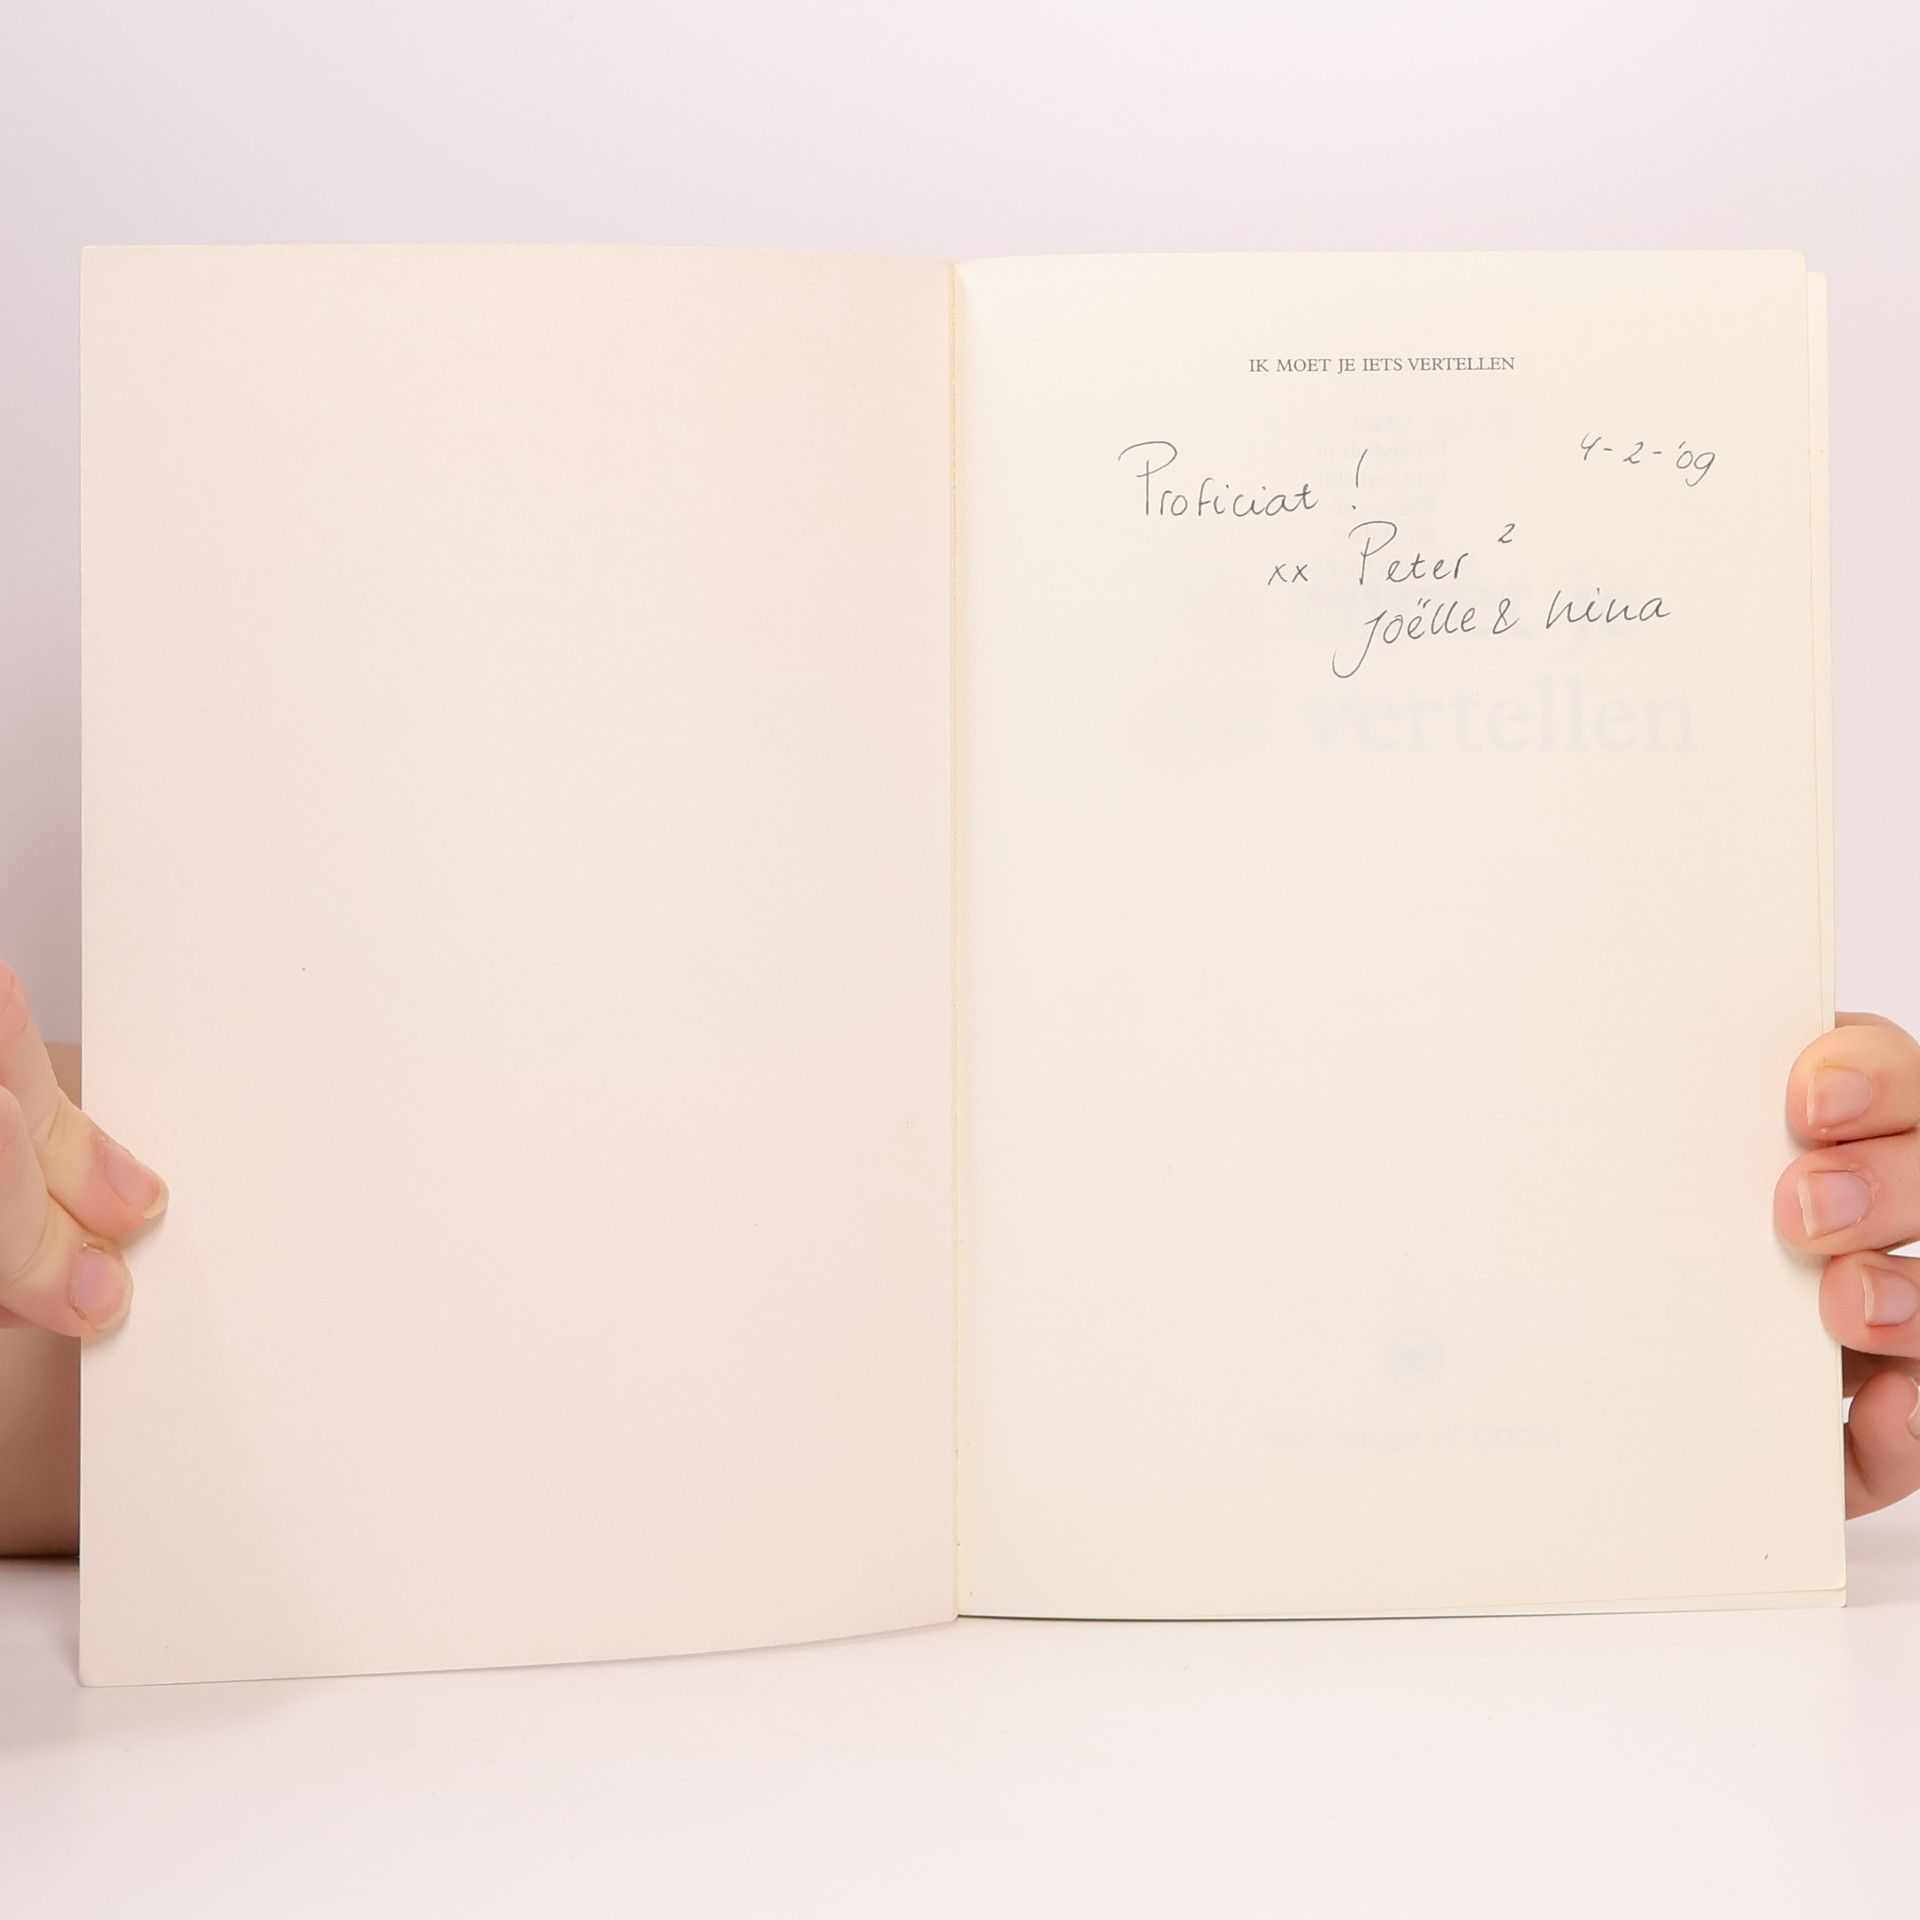 IK MOET JE IETS VERTELLEN
4-2-'09
Proficiat !
xx Peter ²
Joëlle & Nina
vertellen